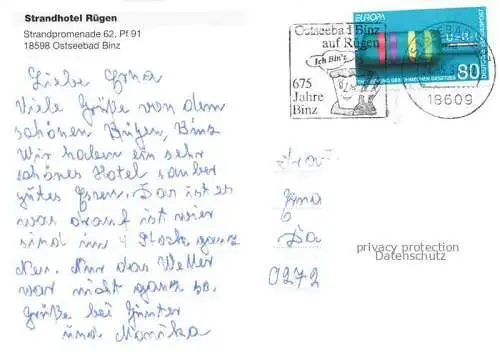 Strandhotel Rügen
Strandpromenade 62, Pf 91
18598 Ostseebad Binz
Liebe Erna
Viele Grüße von dem
schönen Rügen, Binz
Wir haben ein sehr
schönes Hotel sauber
gutes Essen. Das ist es
was drauf ist wir
sind im 4 Stock ganz
Neu. Nur das Wetter
war nicht ganz so.
Grüße bei Günter
und Monika
Ostseebad Binz
auf Rügen
Ich Bin'z
675
Jahre
Binz
EUROPA
80
DEUTSCHE BUNDESPOST
18609
Frau
Erna
privacy protection
Datenschutz